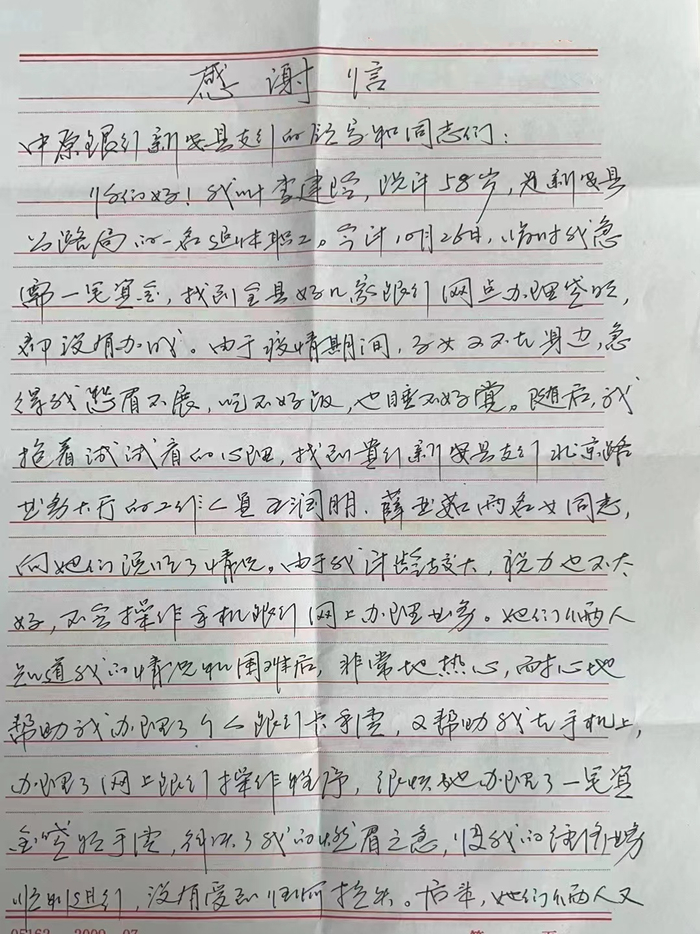 感谢信
中原银行新安县支行的领导和同志们：
你们好！我叫李建，现年58岁，是新安县
公路局的一名退休职工。今年10月26日，临时我急
需一笔资金，找到全县好几家银行网点办理贷款，
都没有办成。由于疫情期间，子女又不在身边，急
得我愁眉不展，吃不好饭，也睡不好觉。随后，我
抱着试试看的心理，找到贵行新安县支行北京路
业务大厅的工作人员王润明、薛亚茹两名女同志，
向她们说明了情况。由于我年龄较大，视力也不太
好，不会操作手机银行网上办理业务。她们俩人
知道我的情况和困难后，非常地热心，耐心地
帮助我办理了个人银行卡手续，又帮助我在手机上，
办理了网上银行操作程序，很快地办理了一笔资
金贷款手续，解决了我的燃眉之急，使我的经济业务
顺利进行，没有受到任何损失。后来，她们俩人又